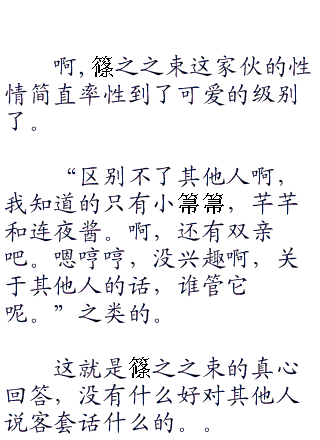 啊，篠之之束这家伙的性
情简直率性到了可爱的级别
了。
“区别不了其他人啊，
我知道的只有小箒箒，芊芊
和连夜酱。啊，还有双亲
吧。嗯哼哼，没兴趣啊，关
于其他人的话，谁管它
呢。”之类的。
这就是篠之之束的真心
回答，没有什么好对其他人
说客套话什么的。。